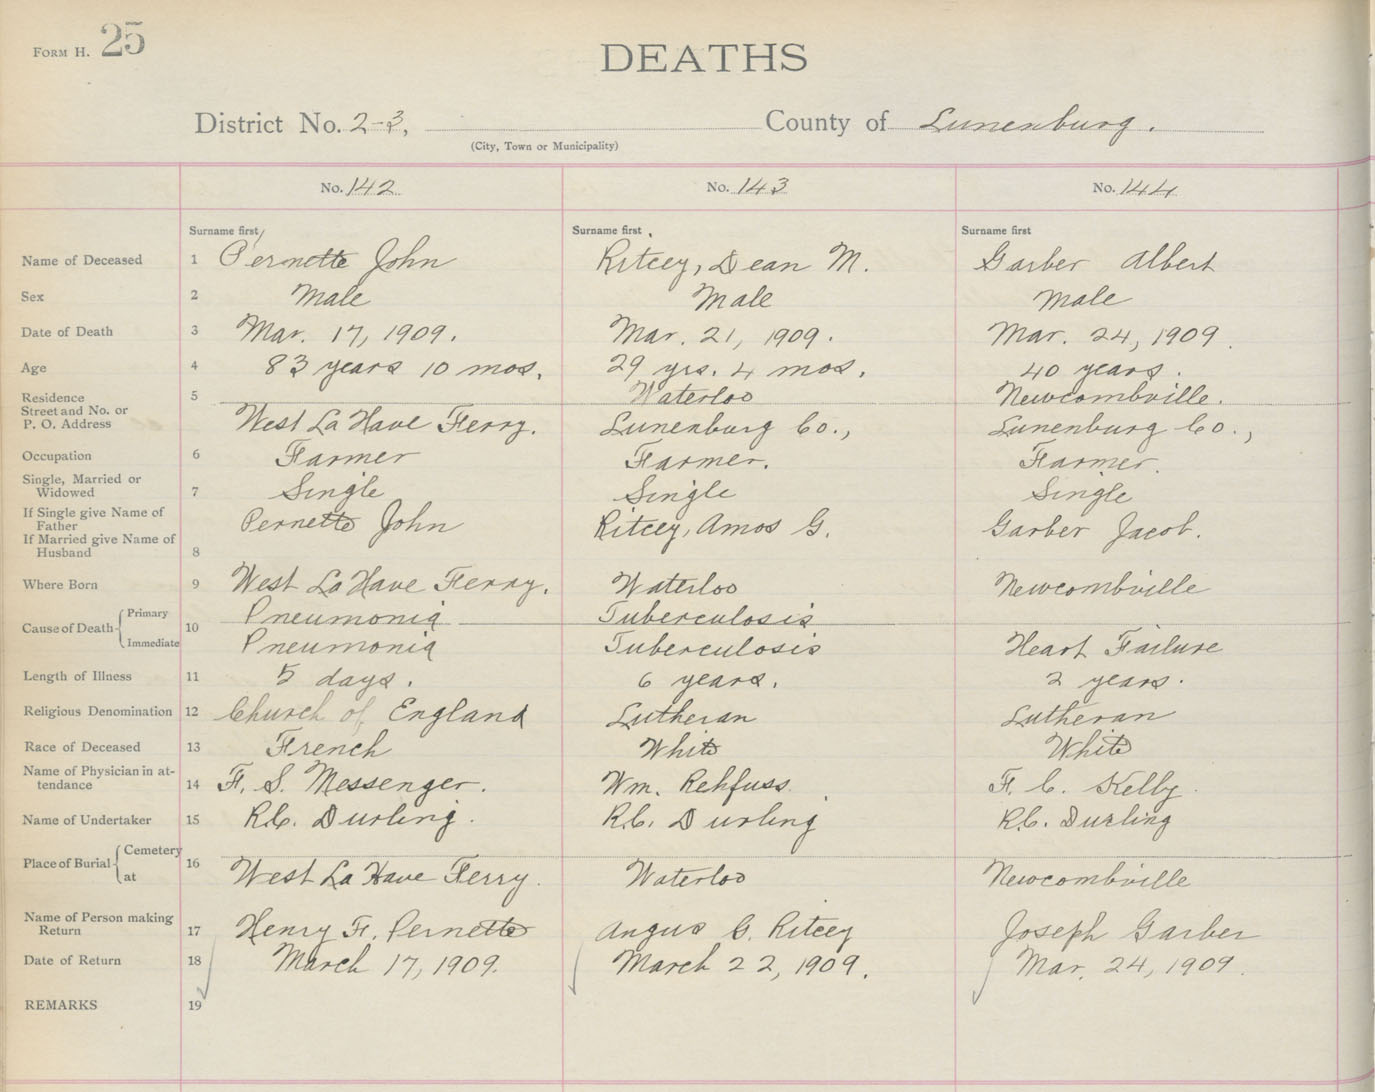 FORM H. 25
DEATHS
District No. 2-3, County of Lunenburg.
(City, Town or Municipality)
No. 142 No. 143 No. 144
Surname first Surname first Surname first
Name of Deceased 1 Pernette John Ritcey, Dean M. Garber Albert
Sex 2 Male Male Male
Date of Death 3 Mar. 17, 1909. Mar. 21, 1909. Mar. 24, 1909.
Age 4 83 years 10 mos. 29 yrs. 4 mos. 40 years.
Residence 5 Waterloo Newcombville.
Street and No. or
P. O. Address West La Have Ferry. Lunenburg Co., Lunenburg Co.,
Occupation 6 Farmer Farmer. Farmer.
Single, Married or
Widowed 7 Single Single Single
If Single give Name of
Father Pernette John Ritcey, Amos G. Garber Jacob.
If Married give Name of
Husband 8
Where Born 9 West La Have Ferry. Waterloo Newcombville
Cause of Death Primary 10 Pneumonia Tuberculosis
Immediate Pneumonia Tuberculosis Heart Failure
Length of Illness 11 5 days. 6 years. 2 years.
Religious Denomination 12 Church of England Lutheran Lutheran
Race of Deceased 13 French White White
Name of Physician in at-
tendance 14 F. S. Messenger. Wm. Rehfuss. F. C. Kelly.
Name of Undertaker 15 R.C. Durling. R.C. Durling R.C. Durling
Place of Burial Cemetery 16
at West La Have Ferry. Waterloo Newcombville
Name of Person making
Return 17 Henry F. Pernette Angus C. Ritcey Joseph Garber
Date of Return 18 March 17, 1909. March 22, 1909. Mar. 24, 1909.
REMARKS 19